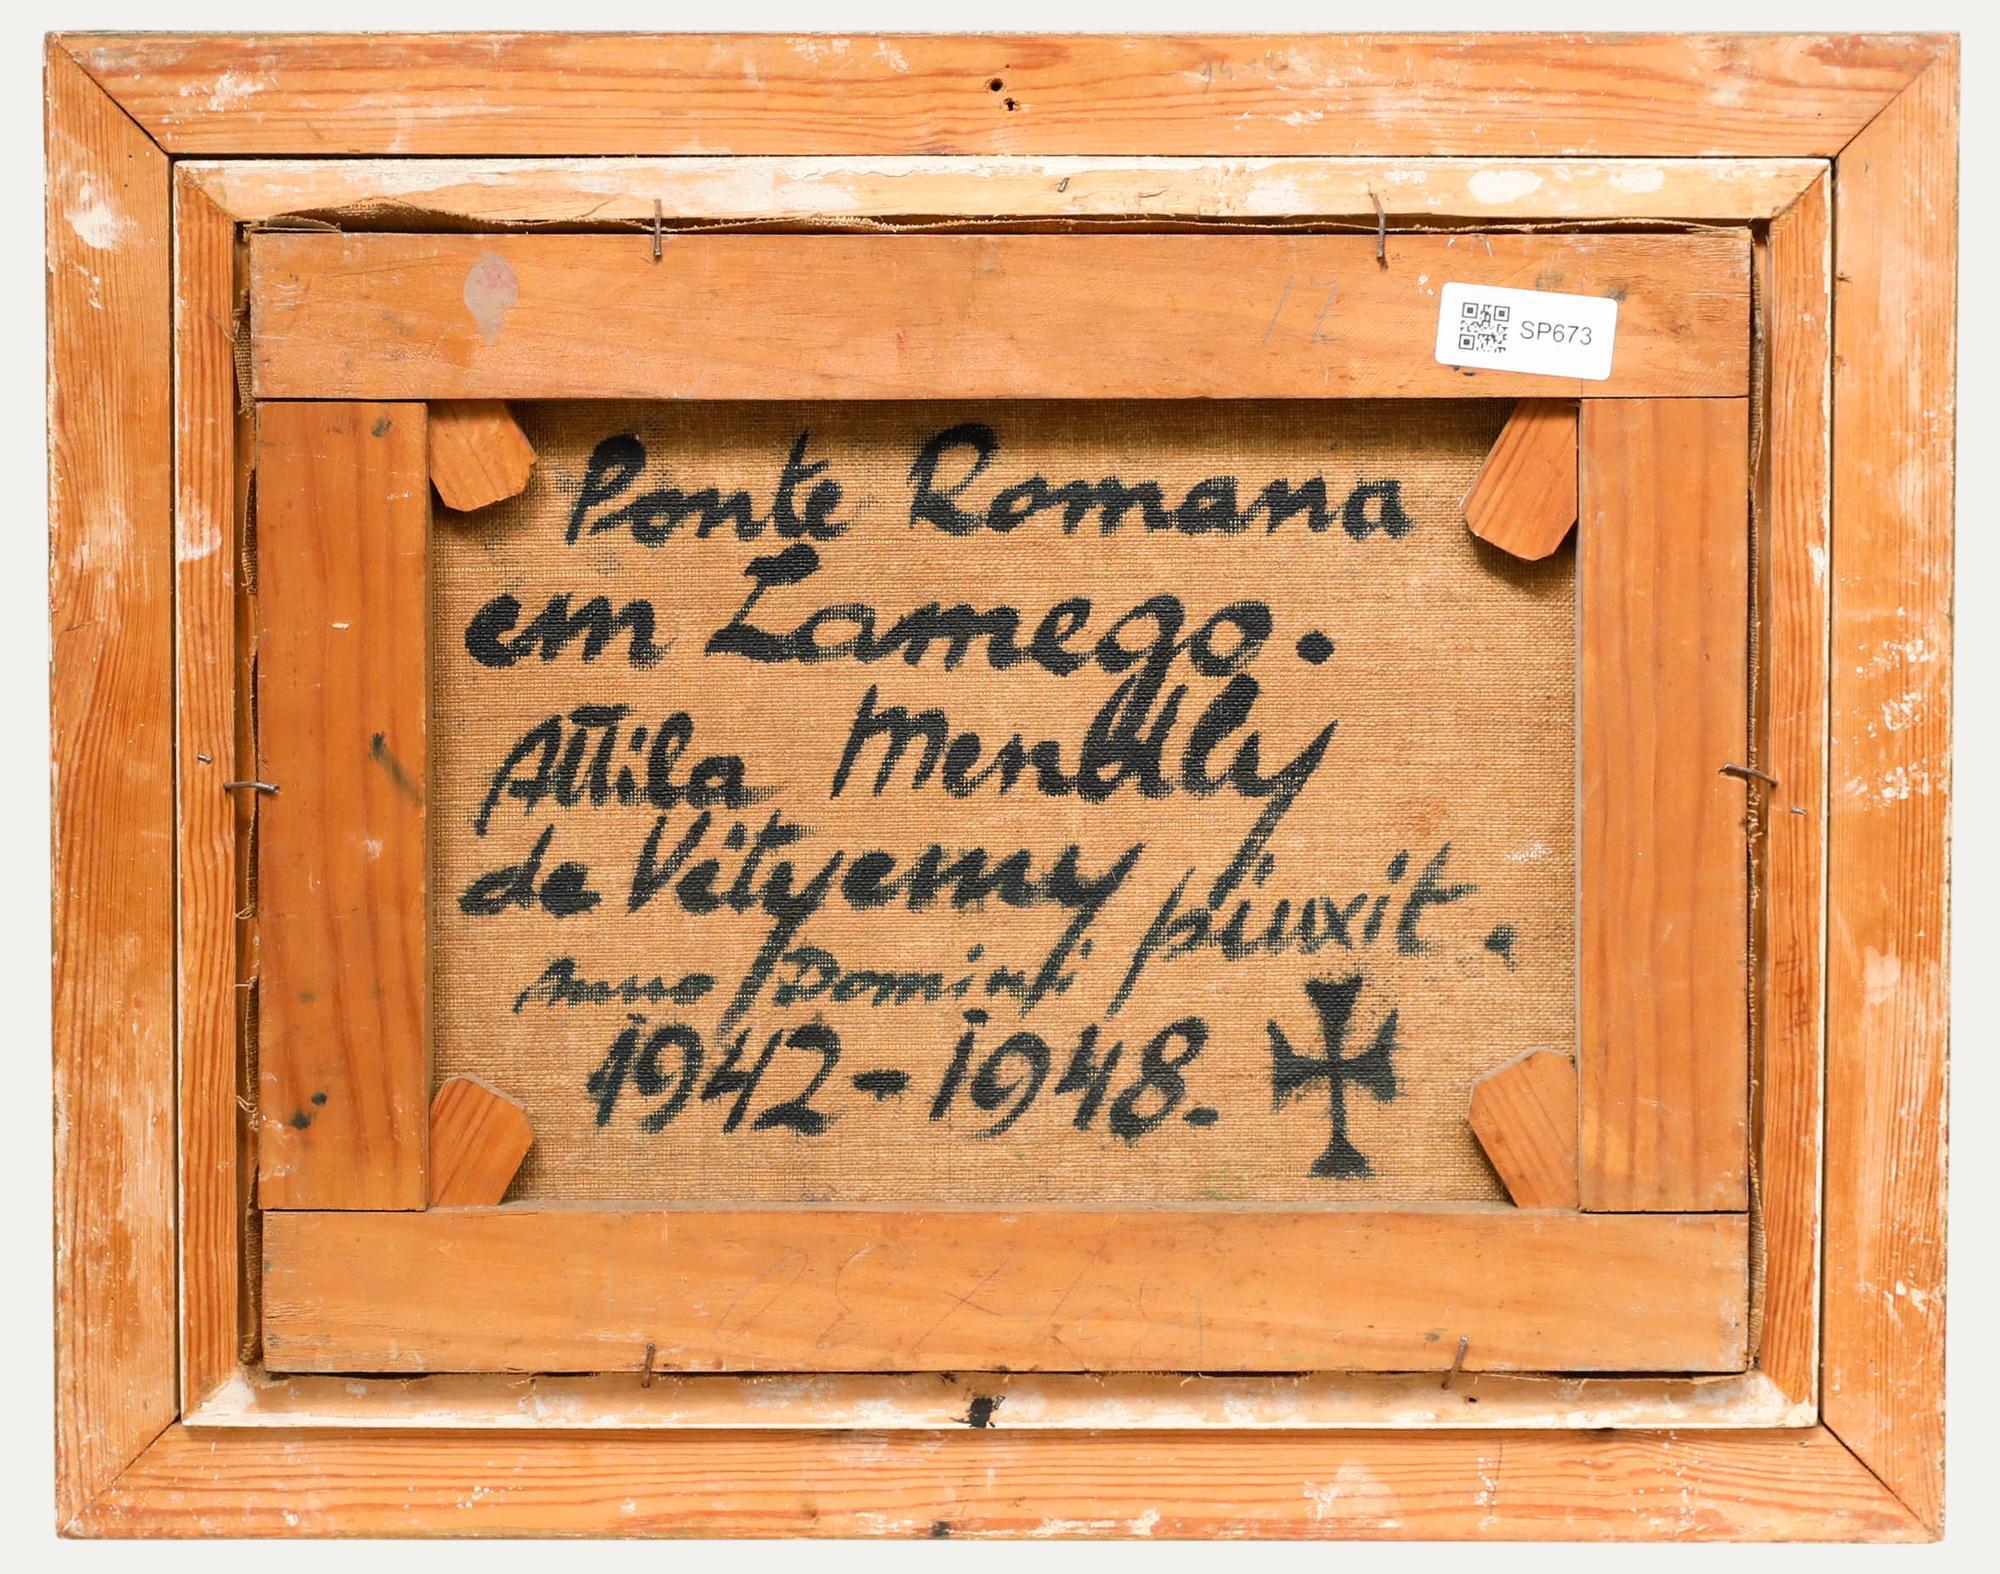 17
SP673
Ponte Romana
em Lamego.
Attila Mendly
de Vityemy pinxit.
Anno Domini
1942-1948.